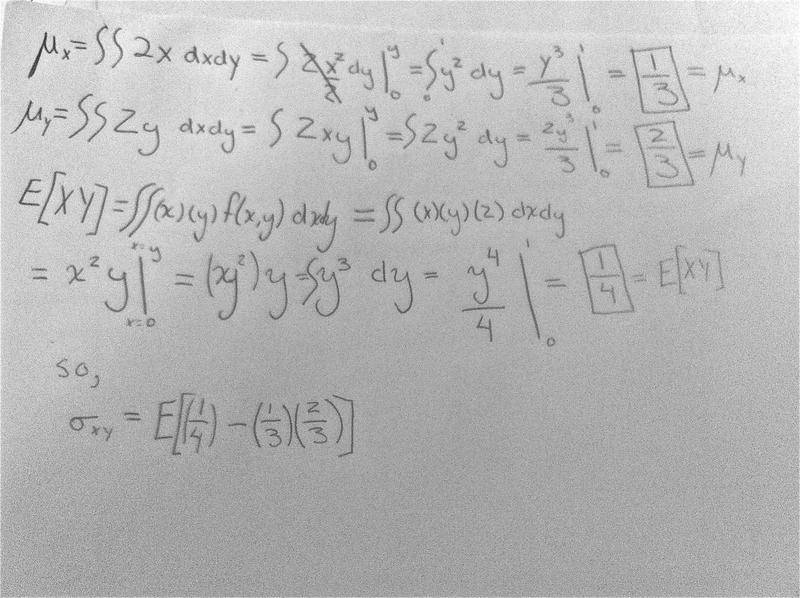 μx = ∫∫ 2x dxdy = ∫ 2x²/2 dy |₀ʸ = ∫₀¹ y² dy = y³/3 |₀¹ = 1/3 = μx
μy = ∫∫ 2y dxdy = ∫ 2xy |₀ʸ = ∫ 2y² dy = 2y³/3 |₀¹ = 2/3 = μy
E[XY] = ∫∫(x)(y) f(x,y) dxdy = ∫∫ (x)(y)(2) dxdy
= x²y |ₓ₌₀ˣ⁼ʸ = (xy²)y = ∫y³ dy = y⁴/4 |₀¹ = 1/4 = E[XY]
so,
σxy = E[(1/4) - (1/3)(2/3)]